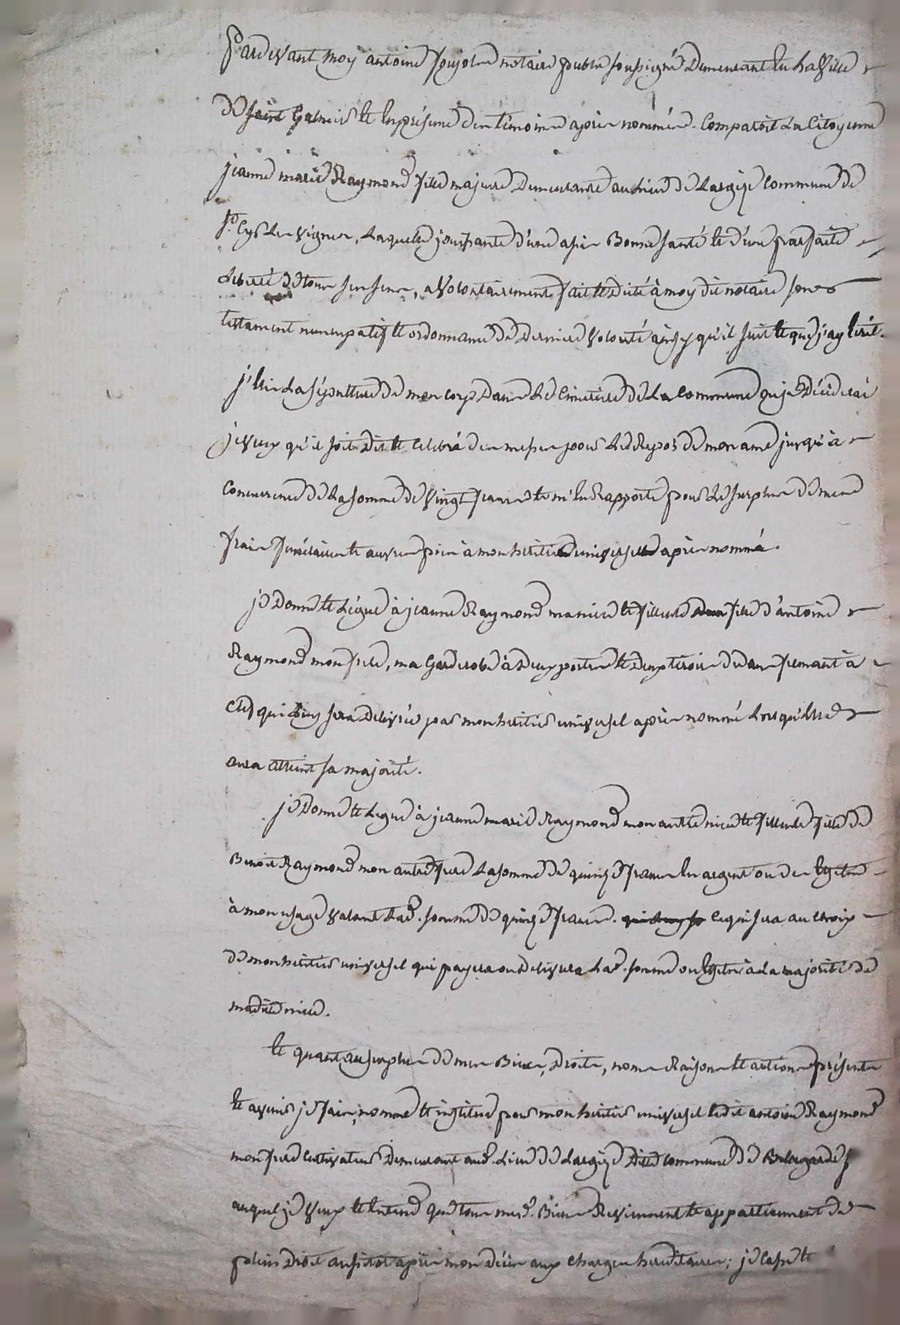 Pardevant moy antoine notaire public soussigné Demeurant En La Ville
De Saint Galmier et En présence des témoins après nommés. Comparoit La Citoyenne
jeanne marie Raymond fille majeure Demeurante au lieu de Largize Commune de
St. Cyr Les Vignes, Laquelle jouissante d'une assés Bonne santé et d'une parfaite
Liberté de tous ses sens, a Volontairement fait et Dicté à moy dit notaire son
testament nuncupatif et ordonnance de Derniere Volonté ainsy qu'il suit et que j'ay Ecrit.
j'Elis La sépulture de mon corps Dans Le Cimetiere de La Commune ou je Décéderai
je veux qu'il soit Dit et Celebré des messes pour Le Repos de mon ame jusqu'à
Concurrence de La somme de Vingt francs et m'En Rapporte pour Le surplus de mes
frais funéraires et œuvres pies à mon heritier universel après nommé.
je Donne et Légue à jeanne Raymond ma niece et filleule fille d'antoine
Raymond mon frere, ma Garderobe à Deux portes et Deux tiroirs Dedans fermant à
Clef qui Luy sera Delivrée par mon heritier universel après nommé Lorsqu'Elle
aura atteint sa majorité.
je Donne et Legue à jeanne marie Raymond mon autre niece et filleule fille de
Benoit Raymond mon autre frere La somme de quinze francs En argent ou des Effets
à mon usage Valant Lad. somme de quinze francs. ce qui sera au choix
de mon heritier universel qui payera ou Delivrera Lad. somme ou Effets à La majorité de
madite niece.
Et quant au surplus de mes Biens, Droits, noms Raisons et actions présents
Et avenir je fais, nomme et institue pour mon heritier universel ledit antoine Raymond
mon frere Cultivateur Demeurant aud. Lieu de Largize Dite Commune de
auquel je Veux et Entends que tous mesd. Biens Reviennent et appartiennent de
plein Droit aussitot après mon Décès aux Charges hereditaires; je Casse et